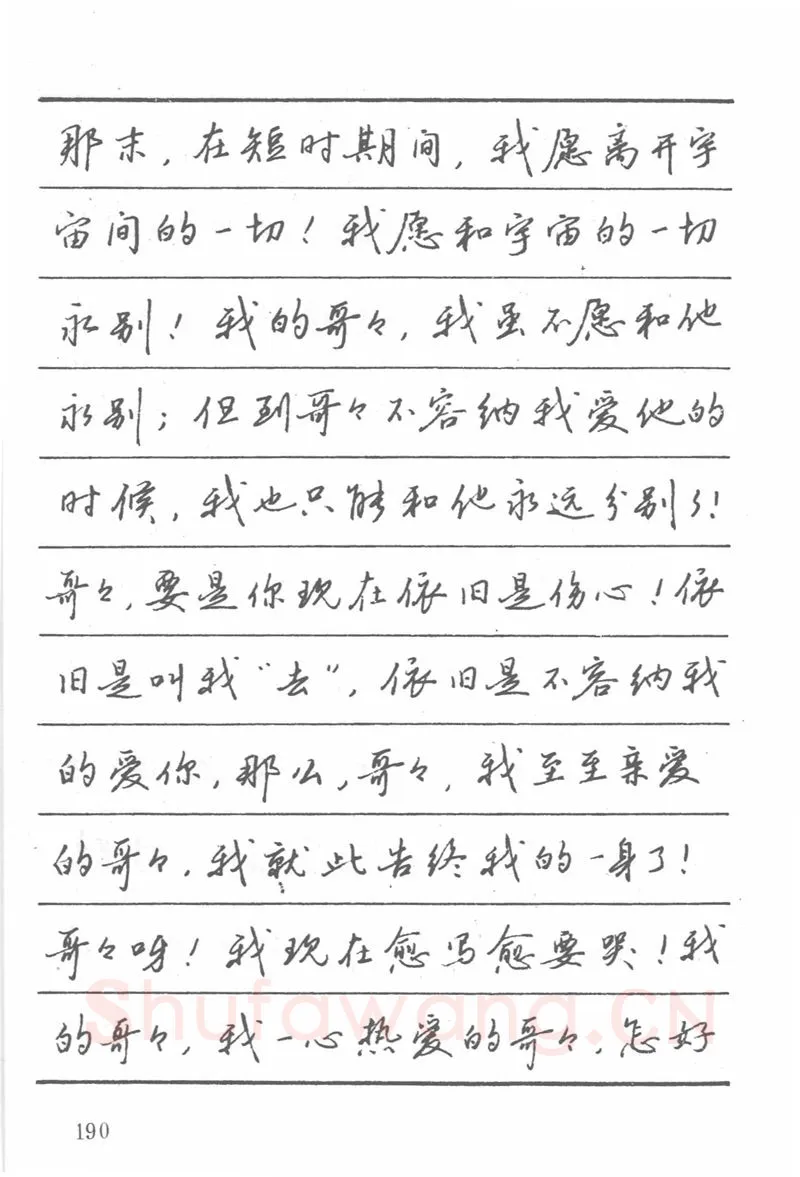 那末，在短时期间，我愿离开宇
宙间的一切！我愿和宇宙的一切
永别！我的哥々，我虽不愿和他
永别；但到哥々不容纳我爱他的
时候，我也只能和他永远分别了！
哥々，要是你现在依旧是伤心！依
旧是叫我“去”，依旧是不容纳我
的爱你，那么，哥々，我至至亲爱
的哥々，我就此告终我的一身了！
哥々呀！我现在愈写愈要哭！我
的哥々，我一心热爱的哥々，怎好
Shufawang.CN
190